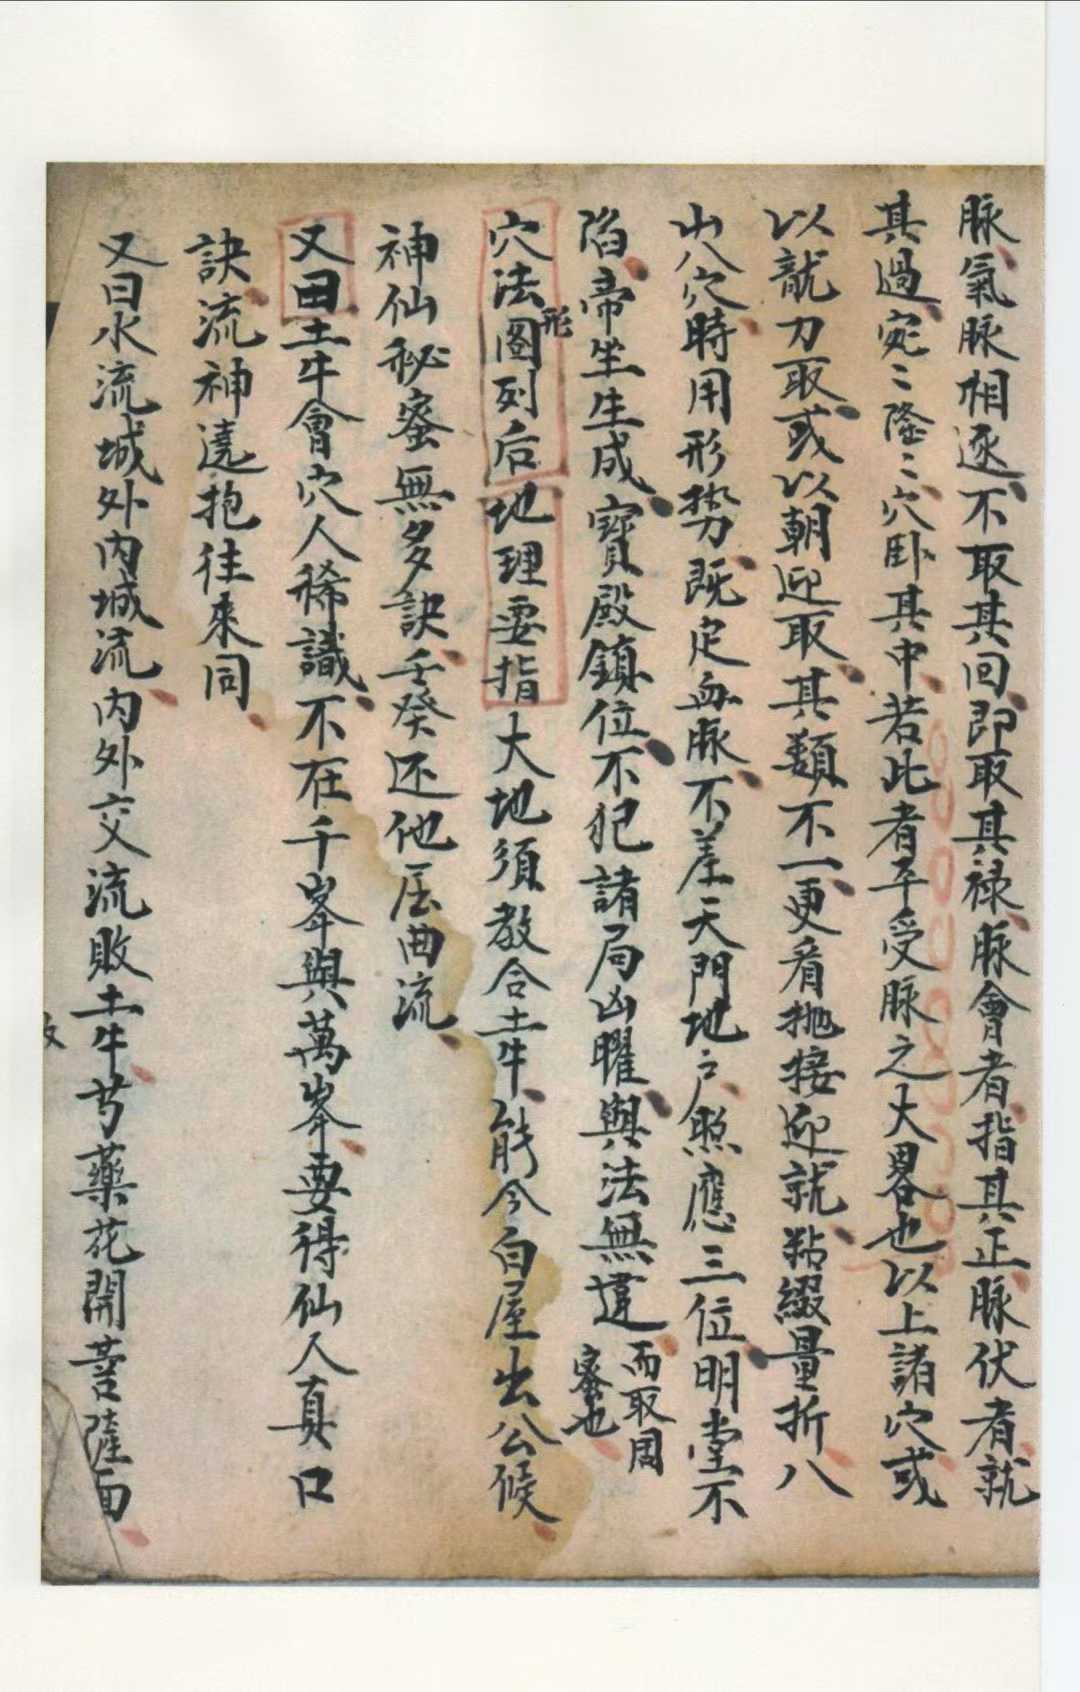 脉氣脉相逐不取其回即取其祿脉會者指其正脉伏者就
其過宛〻隆〻穴卧其中若此者平受脉之大畧也以上諸穴或
以龍刀取或以朝迎取其類不一更看抛接迎就粘綴量折八
山八穴時用形勢既定血脉不差天門地户照應三位明堂不
陷帝坐生成寶殿鎮位不犯諸局凶曜與法無違而取周
密也
穴法圖形列后地理要指大地須教合土牛能令白屋出公候
神仙秘蜜無多訣壬癸还他屈曲流
又曰土牛會穴人稀識不在千峯與萬峯要得仙人真口
訣流神遶抱往來同
又曰水流城外内城流内外交流敗土牛芍藥花開菩薩面